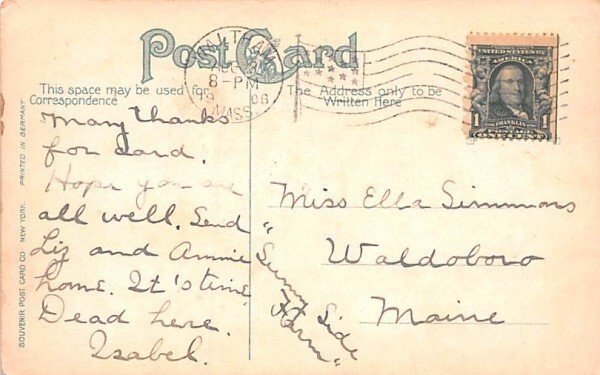 Post Card
This space may be used for
Correspondence
The Address only to be
Written Here
WALTHAM
8-PM
1908
MASS.
UNITED STATES
FRANKLIN
1 1
Many thanks
for card.
Hope you are
all well. Send
Liz and Annie
home. It's time
Dead here.
Isabel.
Miss Ella Simmons
Waldoboro
Maine
"Sunny Side
Farm"
SOUVENIR POST CARD CO. NEW YORK. PRINTED IN GERMANY